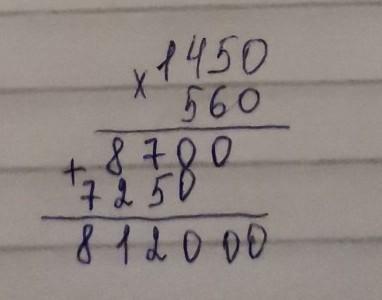 1450
× 560
8700
+ 7250
812000